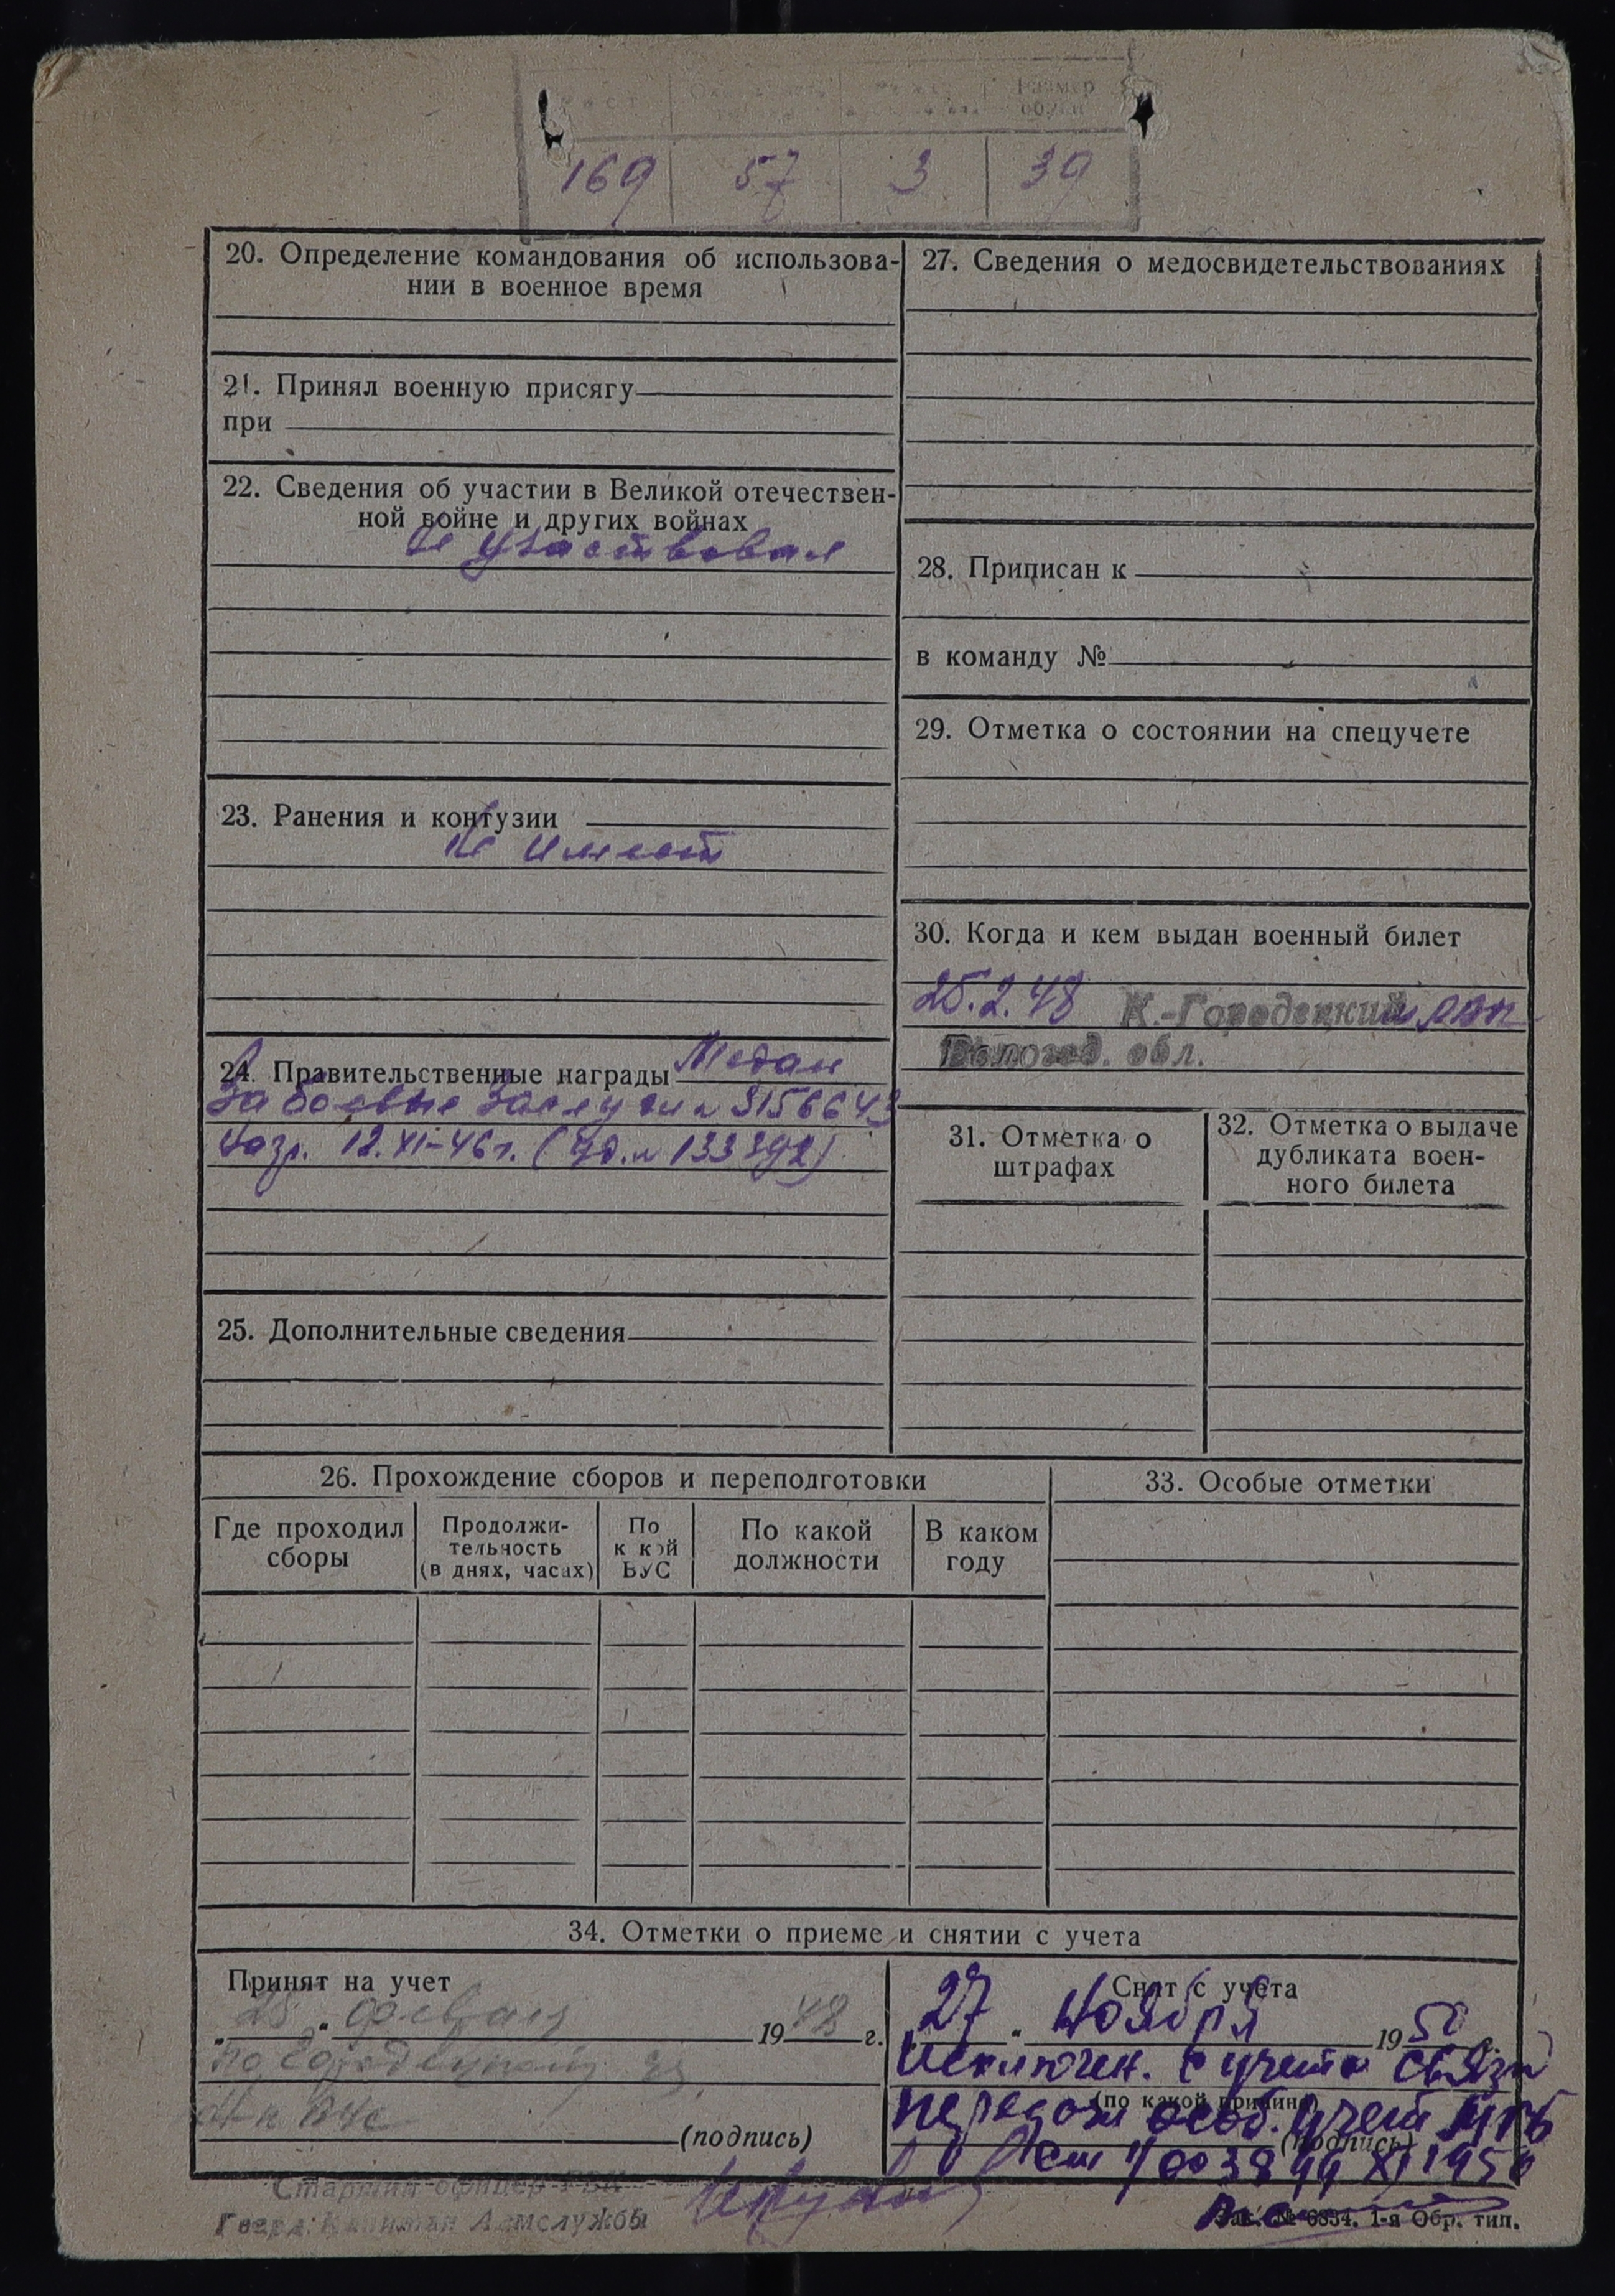 Размер
обуви
169 57 3 39
20. Определение командования об использова-
нии в военное время
21. Принял военную присягу
при
22. Сведения об участии в Великой отечествен-
ной войне и других войнах
Не участвовал
23. Ранения и контузии
Не имеет
24. Правительственные награды Медаль
За боевые Заслуги № 3156643
Нагр. 12.XI-46 г. (Уд. № 133392)
25. Дополнительные сведения
27. Сведения о медосвидетельствованиях
28. Приписан к
в команду №
29. Отметка о состоянии на спецучете
30. Когда и кем выдан военный билет
25.2.48 К.-Городецкий
Вологод. обл.
31. Отметка о
штрафах
32. Отметка о выдаче
дубликата воен-
ного билета
26. Прохождение сборов и переподготовки
Где проходил
сборы
Продолжи-
тельность
(в днях, часах)
По
к кой
ВУС
По какой
должности
В каком
году
33. Особые отметки
34. Отметки о приеме и снятии с учета
Принят на учет
„ 25 “ февраля 1948 г.
по
(подпись)
Старший офицер РВК
Гвард. Капитан Админслужбы
Снят с учета
27 “ Ноября 1950 г.
Исключен. с учета связи
(по какой причине)
особ. учет МГБ
(подпись)
XI 1950
Зак. № 6354. 1-я Обр. тип.